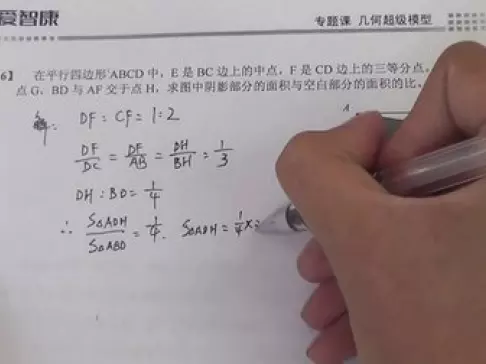 爱智康
专题课 几何超级模型
6】 在平行四边形 ABCD 中，E 是 BC 边上的中点，F 是 CD 边上的三等分点，
点 G、BD 与 AF 交于点 H，求图中阴影部分的面积与空白部分的面积的比。
A
DF : CF = 1:2
DF/DC = DF/AB = DH/BH = 1/3
DH : BD = 1/4
∴ S△ADH/S△ABD = 1/4. S△ADH = 1/4 ×